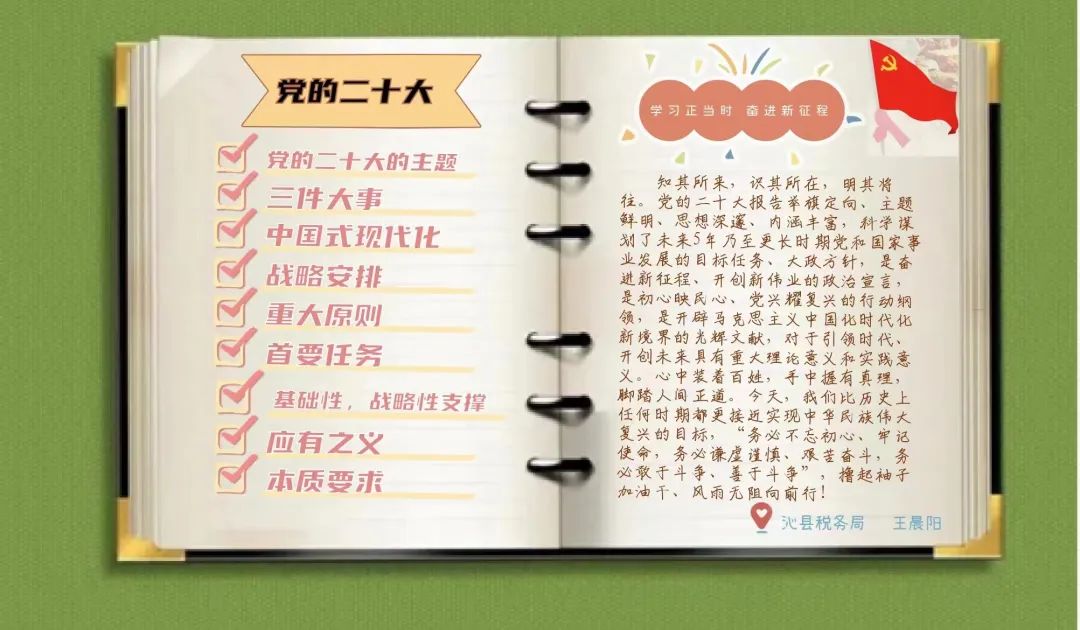 党的二十大
党的二十大的主题
三件大事
中国式现代化
战略安排
重大原则
首要任务
基础性，战略性支撑
应有之义
本质要求
学习正当时 奋进新征程
知其所来，识其所在，明其将
往。党的二十大报告举旗定向、主题
鲜明、思想深邃、内涵丰富，科学谋
划了未来5年乃至更长时期党和国家事
业发展的目标任务、大政方针，是奋
进新征程、开创新伟业的政治宣言，
是初心映民心、党兴耀复兴的行动纲
领，是开辟马克思主义中国化时代化
新境界的光辉文献，对于引领时代、
开创未来具有重大理论意义和实践意
义。心中装着百姓，手中握有真理，
脚踏人间正道。今天，我们比历史上
任何时期都更接近实现中华民族伟大
复兴的目标，“务必不忘初心、牢记
使命，务必谦虚谨慎、艰苦奋斗，务
必敢于斗争、善于斗争”，撸起袖子
加油干、风雨无阻向前行！
沁县税务局 王晨阳